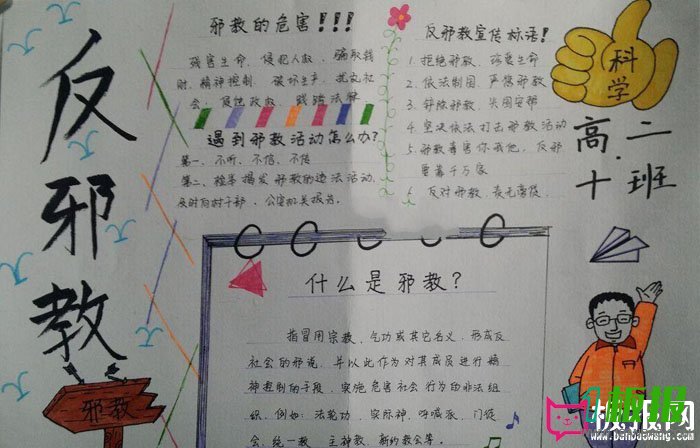 反邪教
邪教
邪教的危害!!!
残害生命、侵犯人权、骗取钱
财、精神控制、破坏生产、扰乱社
会、反抗政权、践踏法律
遇到邪教活动怎么办?
第一、不听、不信、不传
第二、检举揭发邪教的违法活动,
及时向村干部、公安机关报告。
反邪教宣传标语!
1. 拒绝邪教,珍爱生命
2. 依法制国,严禁邪教
3. 铲除邪教,
4. 坚决依法打击邪教活动
5. 邪教毒害你我他,反邪
千万家
6. 反对邪教,
科学
高二
十班
什么是邪教?
指冒用宗教、气功或其它名义,形成反
社会的邪说,并以此作为对其成员进行精
神控制的手段,实施危害社会行为的非法组
织,例如:法轮功、实际神、呼喊派、门徒
会、统一教、主神教、新约教会等。
板报网
www.banbaowang.com